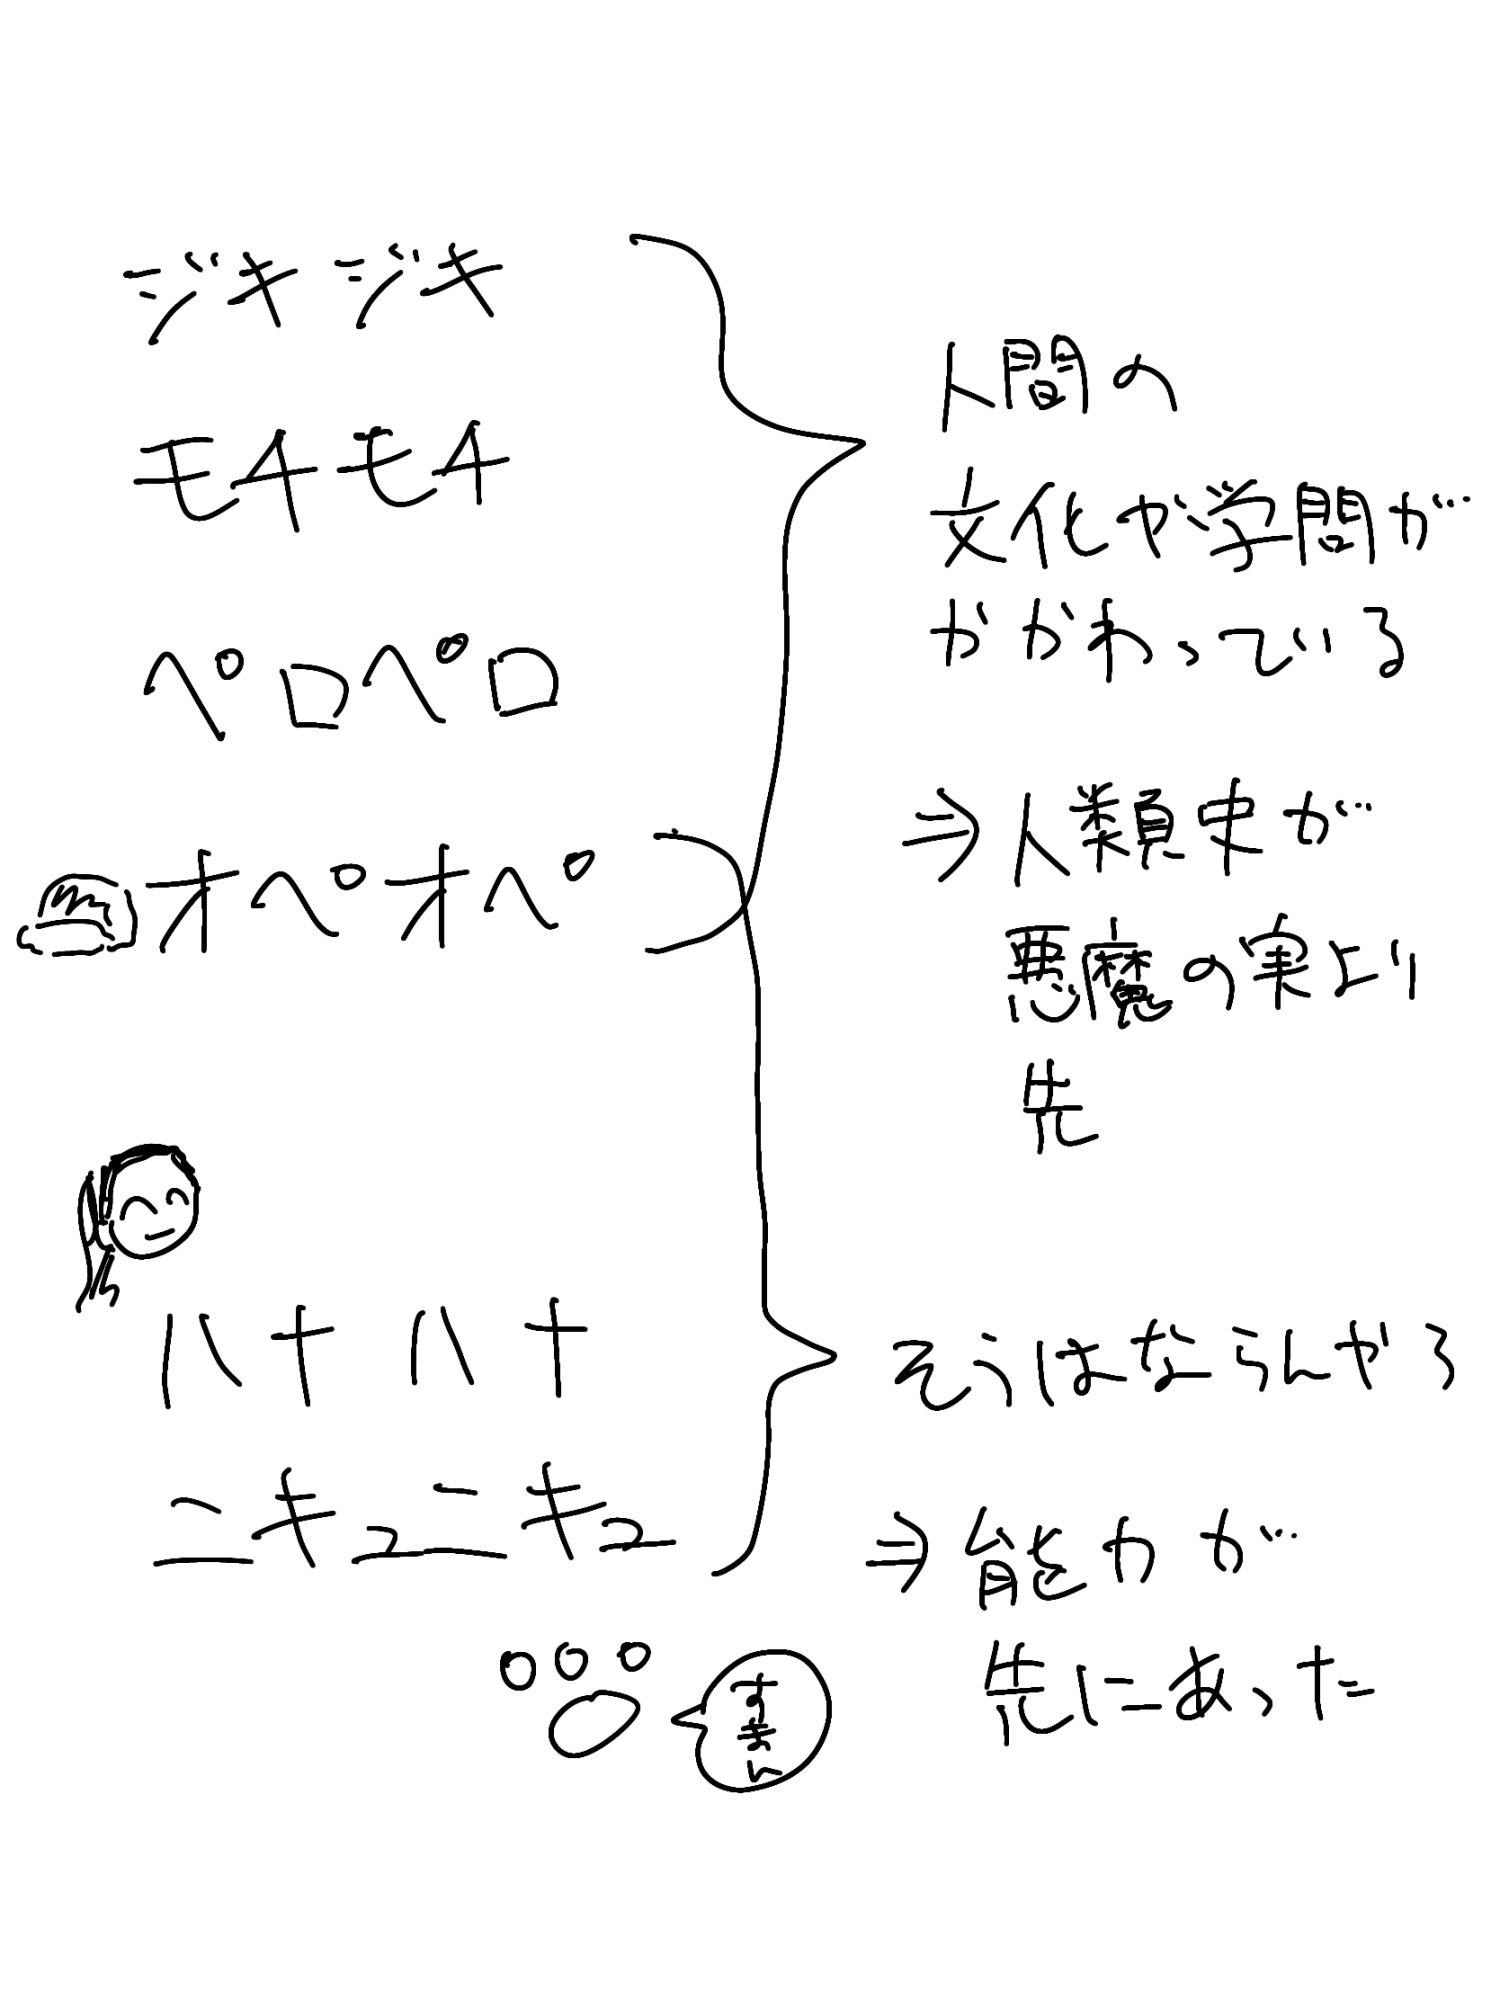 ジキジキ
モチモチ
ペロペロ
オペオペ
ハナハナ
ニキュニキュ
すまん
人間の
文化や学問が
かかわっている
⇒人類史が
悪魔の実より
先
そうはならんやろ
⇒能力が
先にあった